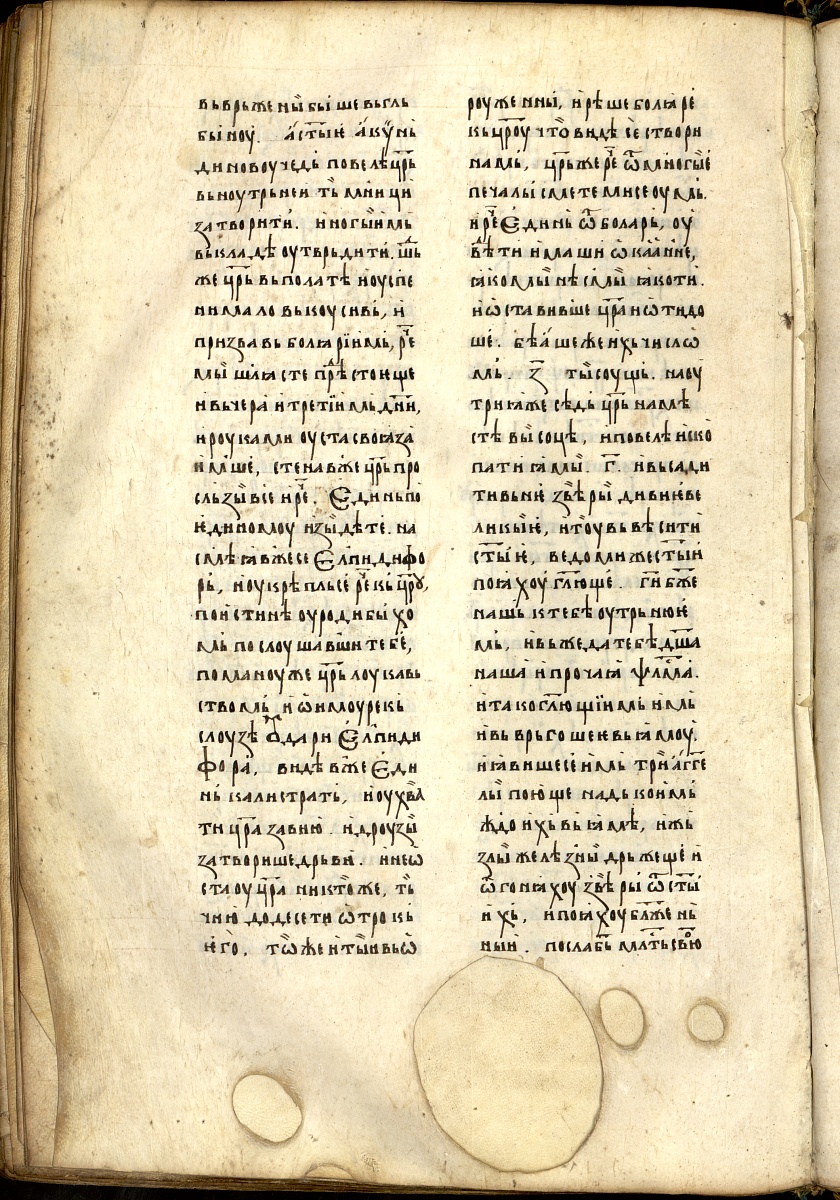 вьврьже ны̏ бы́ ше вьглꙋ
бы́ноу. а҆ст҃ы́ѥ а҆кỳ нь
ди новоу чедь повелѣ цр҃ь
вьноутрьнѥи ть̏мни ци
затворити. и҆ногы́имь
выкладѣ оутврьдити.
же цр҃ь вьполатѣ и҆оуспе
ни мало вькоусивь, и҆
призва вь болꙗрїи́мь, ре҃
мы̏ шлꙗсте прѣ҃стоѥще
и҆вьчера и҆третїи́мьдн҃и,
и҆роуками оуста своꙗза
и҆мше, стенавже цр҃ь про
сльзы̏ все и҆ре҃. Є҆динь по
ѥ҆диномоу и҆зы̏дѣте. на
смѣ ꙗвже се Є҆лпидифо
рь, и҆оукрѣпльсе ре҃кь цр҃оу,
поистинѣ оуроди бы́ хо
мь послоушавши тебе,
поманоуже цр҃ь лоукавь
ствомь и҆ ѡ҆и҆моу рекь
слоузѣ оу҆дари Є҆лпиди
фора̀, видѣ вже Є҆ди
нь калистрать, и҆оухва
ти цр҃а завию. и҆дроузы̏
затворише дрьви. и҆неѡ
стаоу цр҃а никтоже, ть
чию додесети ѡ҆трокь
ѥ҆го. тѡ҆же и҆ты̏и вьѡ
роуженны́, и҆рѣше болꙗре
кьцр҃оу что̀ видѣ се створи
нами, цр҃ь же ре҃ ѿмногы́е
печалы́ смете мисе оумь.
и҆ре҃ Є҆динь ѿболарь, оу
вѣти и҆маши ѡ҆каа҆не,
ꙗкомы̏ нѣ смы̏ ꙗкоти.
и҆ѡ҆ставивше цр҃а и҆ѿидо
ше. бѣа҆шеже и҆хь числѡ
мь. з҃ ты̏соущь. наоу
триꙗже сѣдь цр҃ь намѣ
стѣ вы́соцѣ, и҆повелѣ и҆ско
пати ꙗмы̏. г҃. и҆вьсади
тивьниѥ звѣ ры̏ дивиѥ ве
ликы́ѥ, и҆тоу вьвѣсити
ст҃ы́ѥ, ведомижест҃ы́и
поꙗхоу гл҃юще. ги҃ бж҃е
нашь ктебѣ оутрьнюѥ
мь, и҆вьжеда тебѣ дш҃а
наша и҆прочаꙗ ѱл҃ма.
и҆тако гл҃ющїимь и҆мь
и҆вьврьгоше ѥ вьꙗмоу.
и҆ꙗвишесе и҆мь три а҆гг҃е
лы̏ поюще надь коимь
ждо и҆хь вьꙗмѣ, и҆жь
злы̏ желѣзны̏ дрьжеще и҆
ѿгонꙗхоу звѣ ры́ ѿст҃ы́
и҆хь, и҆поꙗхоу бл҃жень
ныи. послабь мл҃ть свою